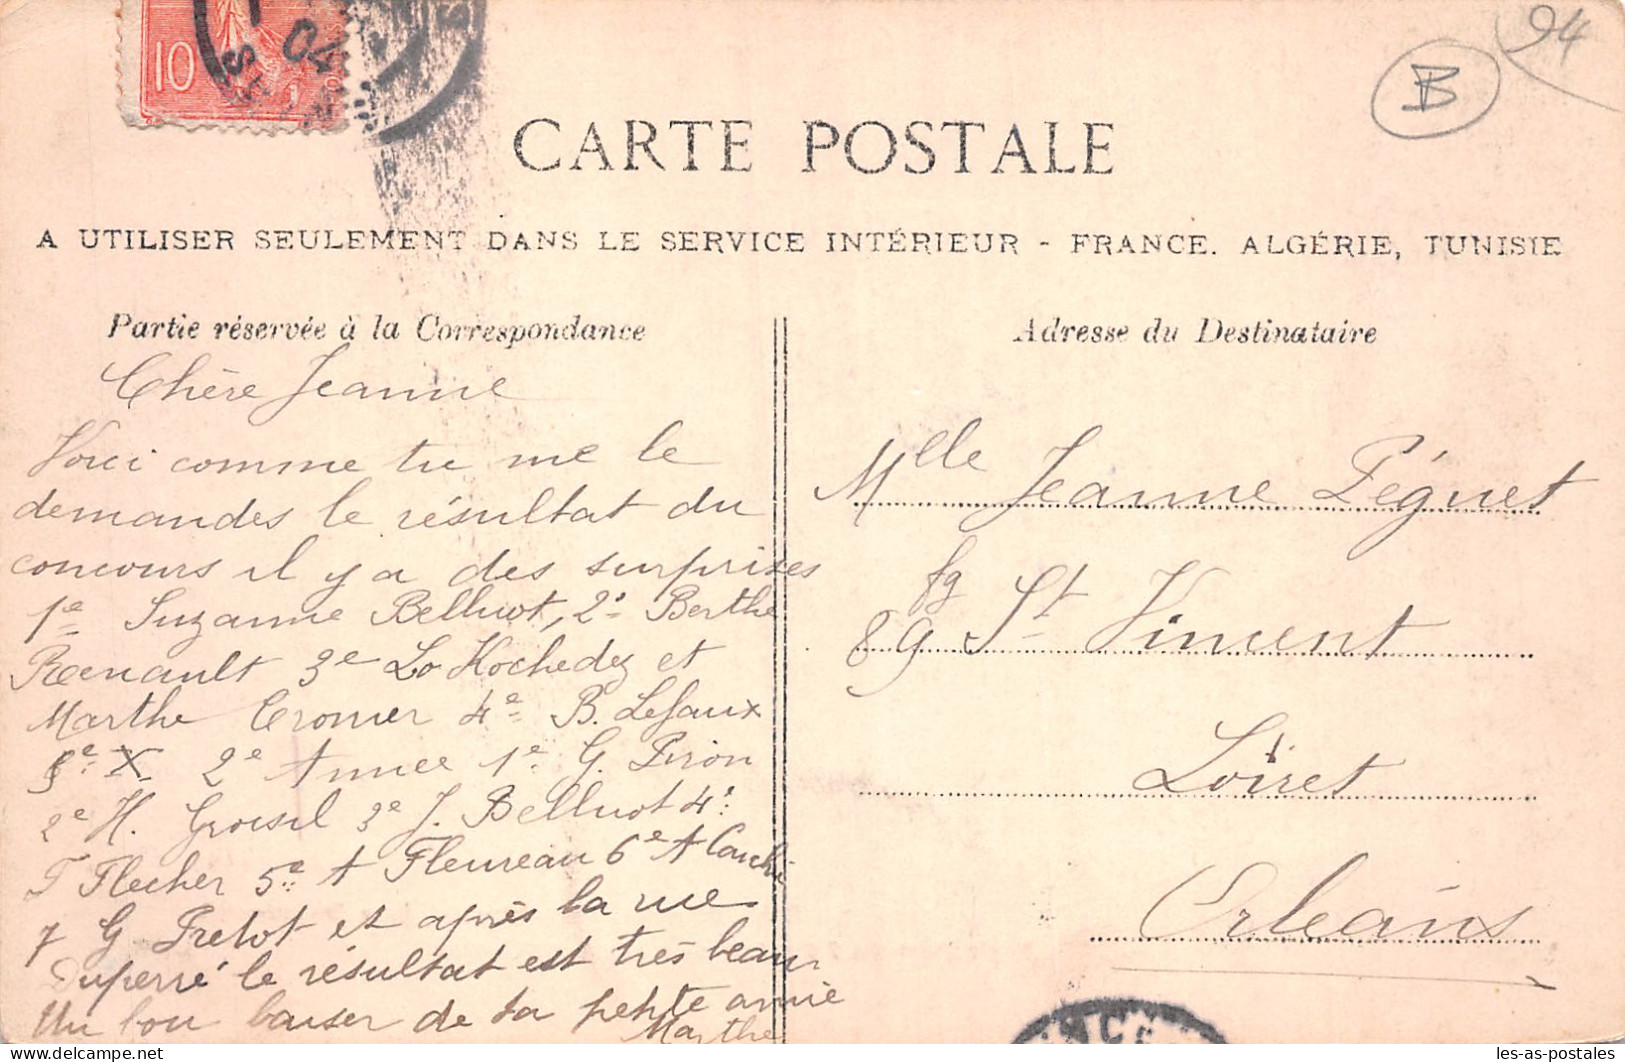 10
04
94
B
CARTE POSTALE
A UTILISER SEULEMENT DANS LE SERVICE INTÉRIEUR - FRANCE. ALGÉRIE, TUNISIE
Partie réservée à la Correspondance
Chère Jeanne
Voici comme tu me le
demandes le résultat du
concours il y a des surprises
1e Suzanne Belluot, 2e Berthe
Renault 3e Lo Hochedez et
Marthe Cronier 4e B. Lefaux
5e X 2e Annee 1e G. Piron
2e H. Groisil 3e J. Belluot 4e
T Flecher 5e A Fleureau 6e A
7 G Pretot et après la rue
Duperré le résultat est très beau
Un bon baiser de ta petite amie
Marthe
Adresse du Destinataire
Mlle Jeanne Péguet
fg
89 St Vincent
Loiret
Orléans
les-as-postales